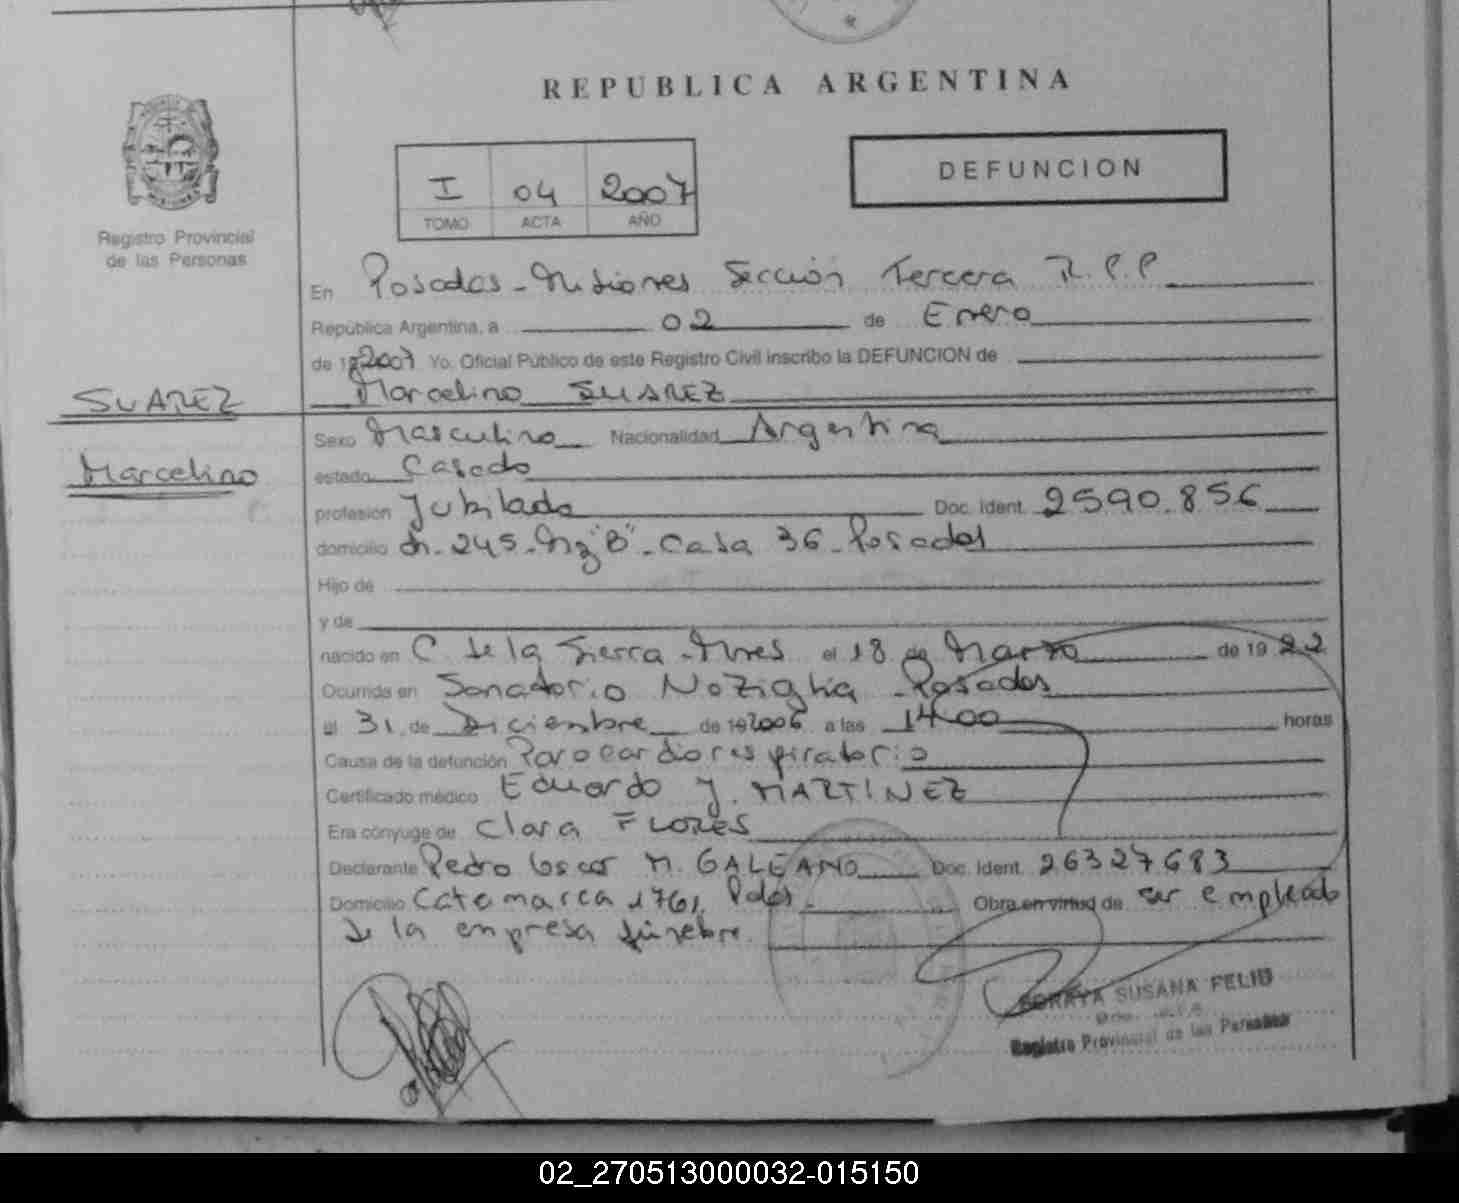 REPUBLICA ARGENTINA
I 04 2007
TOMO ACTA AÑO
DEFUNCION
Registro Provincial
de las Personas
SUAREZ
Marcelino
En Posadas - Misiones Sección Tercera R.P.P
República Argentina, a 02 de Enero
de 2007 Yo, Oficial Público de este Registro Civil inscribo la DEFUNCION de
Marcelino SUAREZ
Sexo Masculino Nacionalidad Argentina
estado Casado
profesión Jubilado Doc. Ident. 2590.856
domicilio Ch. 245 - Mz "B" - Casa 36 - Posadas
Hijo de
y de
nacido en C. de la Sierra - Mnes el 18 de Marzo de 1922
Ocurrida en Sanatorio Noziglia - Posadas
el 31 de Diciembre de 2006 a las 14.00 horas
Causa de la defunción Paro cardiorespiratorio
Certificado médico Eduardo J. MARTINEZ
Era cónyuge de Clara FLORES
Declarante Pedro Oscar M. GALEANO Doc. Ident. 26327683
Domicilio Catamarca 1761, Pdas. Obra en virtud de ser empleado
de la empresa fúnebre.
SORAYA SUSANA FELIU
Registro Provincial de las Personas
02_270513000032-015150